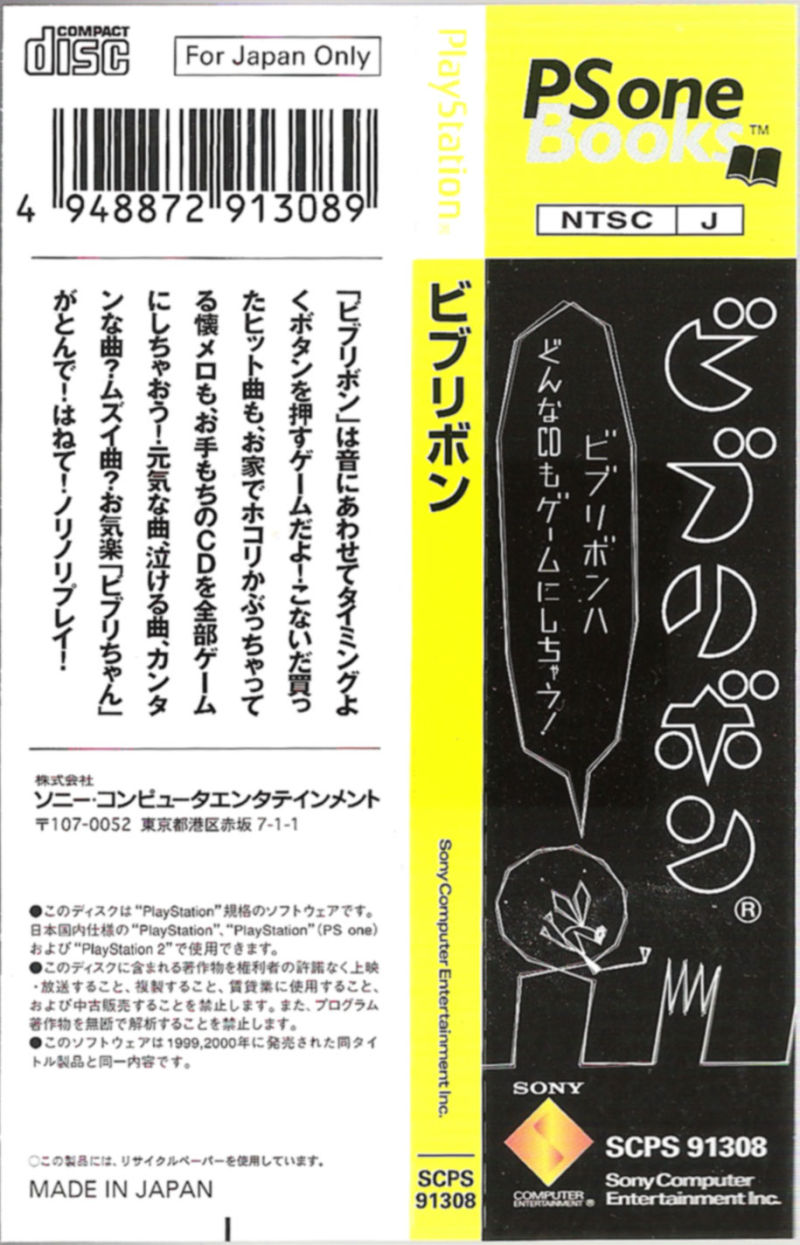 COMPACT
disc
For Japan Only
4 948872 913089
「ビブリボン」は音にあわせてタイミングよ
く、ボタンを押すゲームだよ!こないだ買っ
たヒット曲も、お家でホコリかぶっちゃって
る懐メロも、お手もちのCDを全部ゲーム
にしちゃおう!元気な曲、泣ける曲、カンタ
ンな曲?ムズイ曲?お気楽「ビブリちゃん」
がとんで!はねて!ノリノリプレイ!
株式会社
ソニー・コンピュータエンタテインメント
〒107-0052 東京都港区赤坂 7-1-1
●このディスクは“PlayStation”規格のソフトウェアです。
日本国内仕様の“PlayStation”、“PlayStation”(PS one)
および“PlayStation 2”で使用できます。
●このディスクに含まれる著作物を権利者の許諾なく上映
・放送すること、複製すること、賃貸業に使用すること、
および中古販売することを禁止します。また、プログラム
著作物を無断で解析することを禁止します。
●このソフトウェアは1999,2000年に発売された同タイ
トル製品と同一内容です。
○この製品には、リサイクルペーパーを使用しています。
MADE IN JAPAN
PlayStation®
ビブリボン
Sony Computer Entertainment Inc.
SCPS
91308
PS one
Books™
NTSC J
ビブリボン®
ビブリボンハ
どんなCDもゲームにしちゃう!
SONY
COMPUTER
ENTERTAINMENT®
SCPS 91308
Sony Computer
Entertainment Inc.